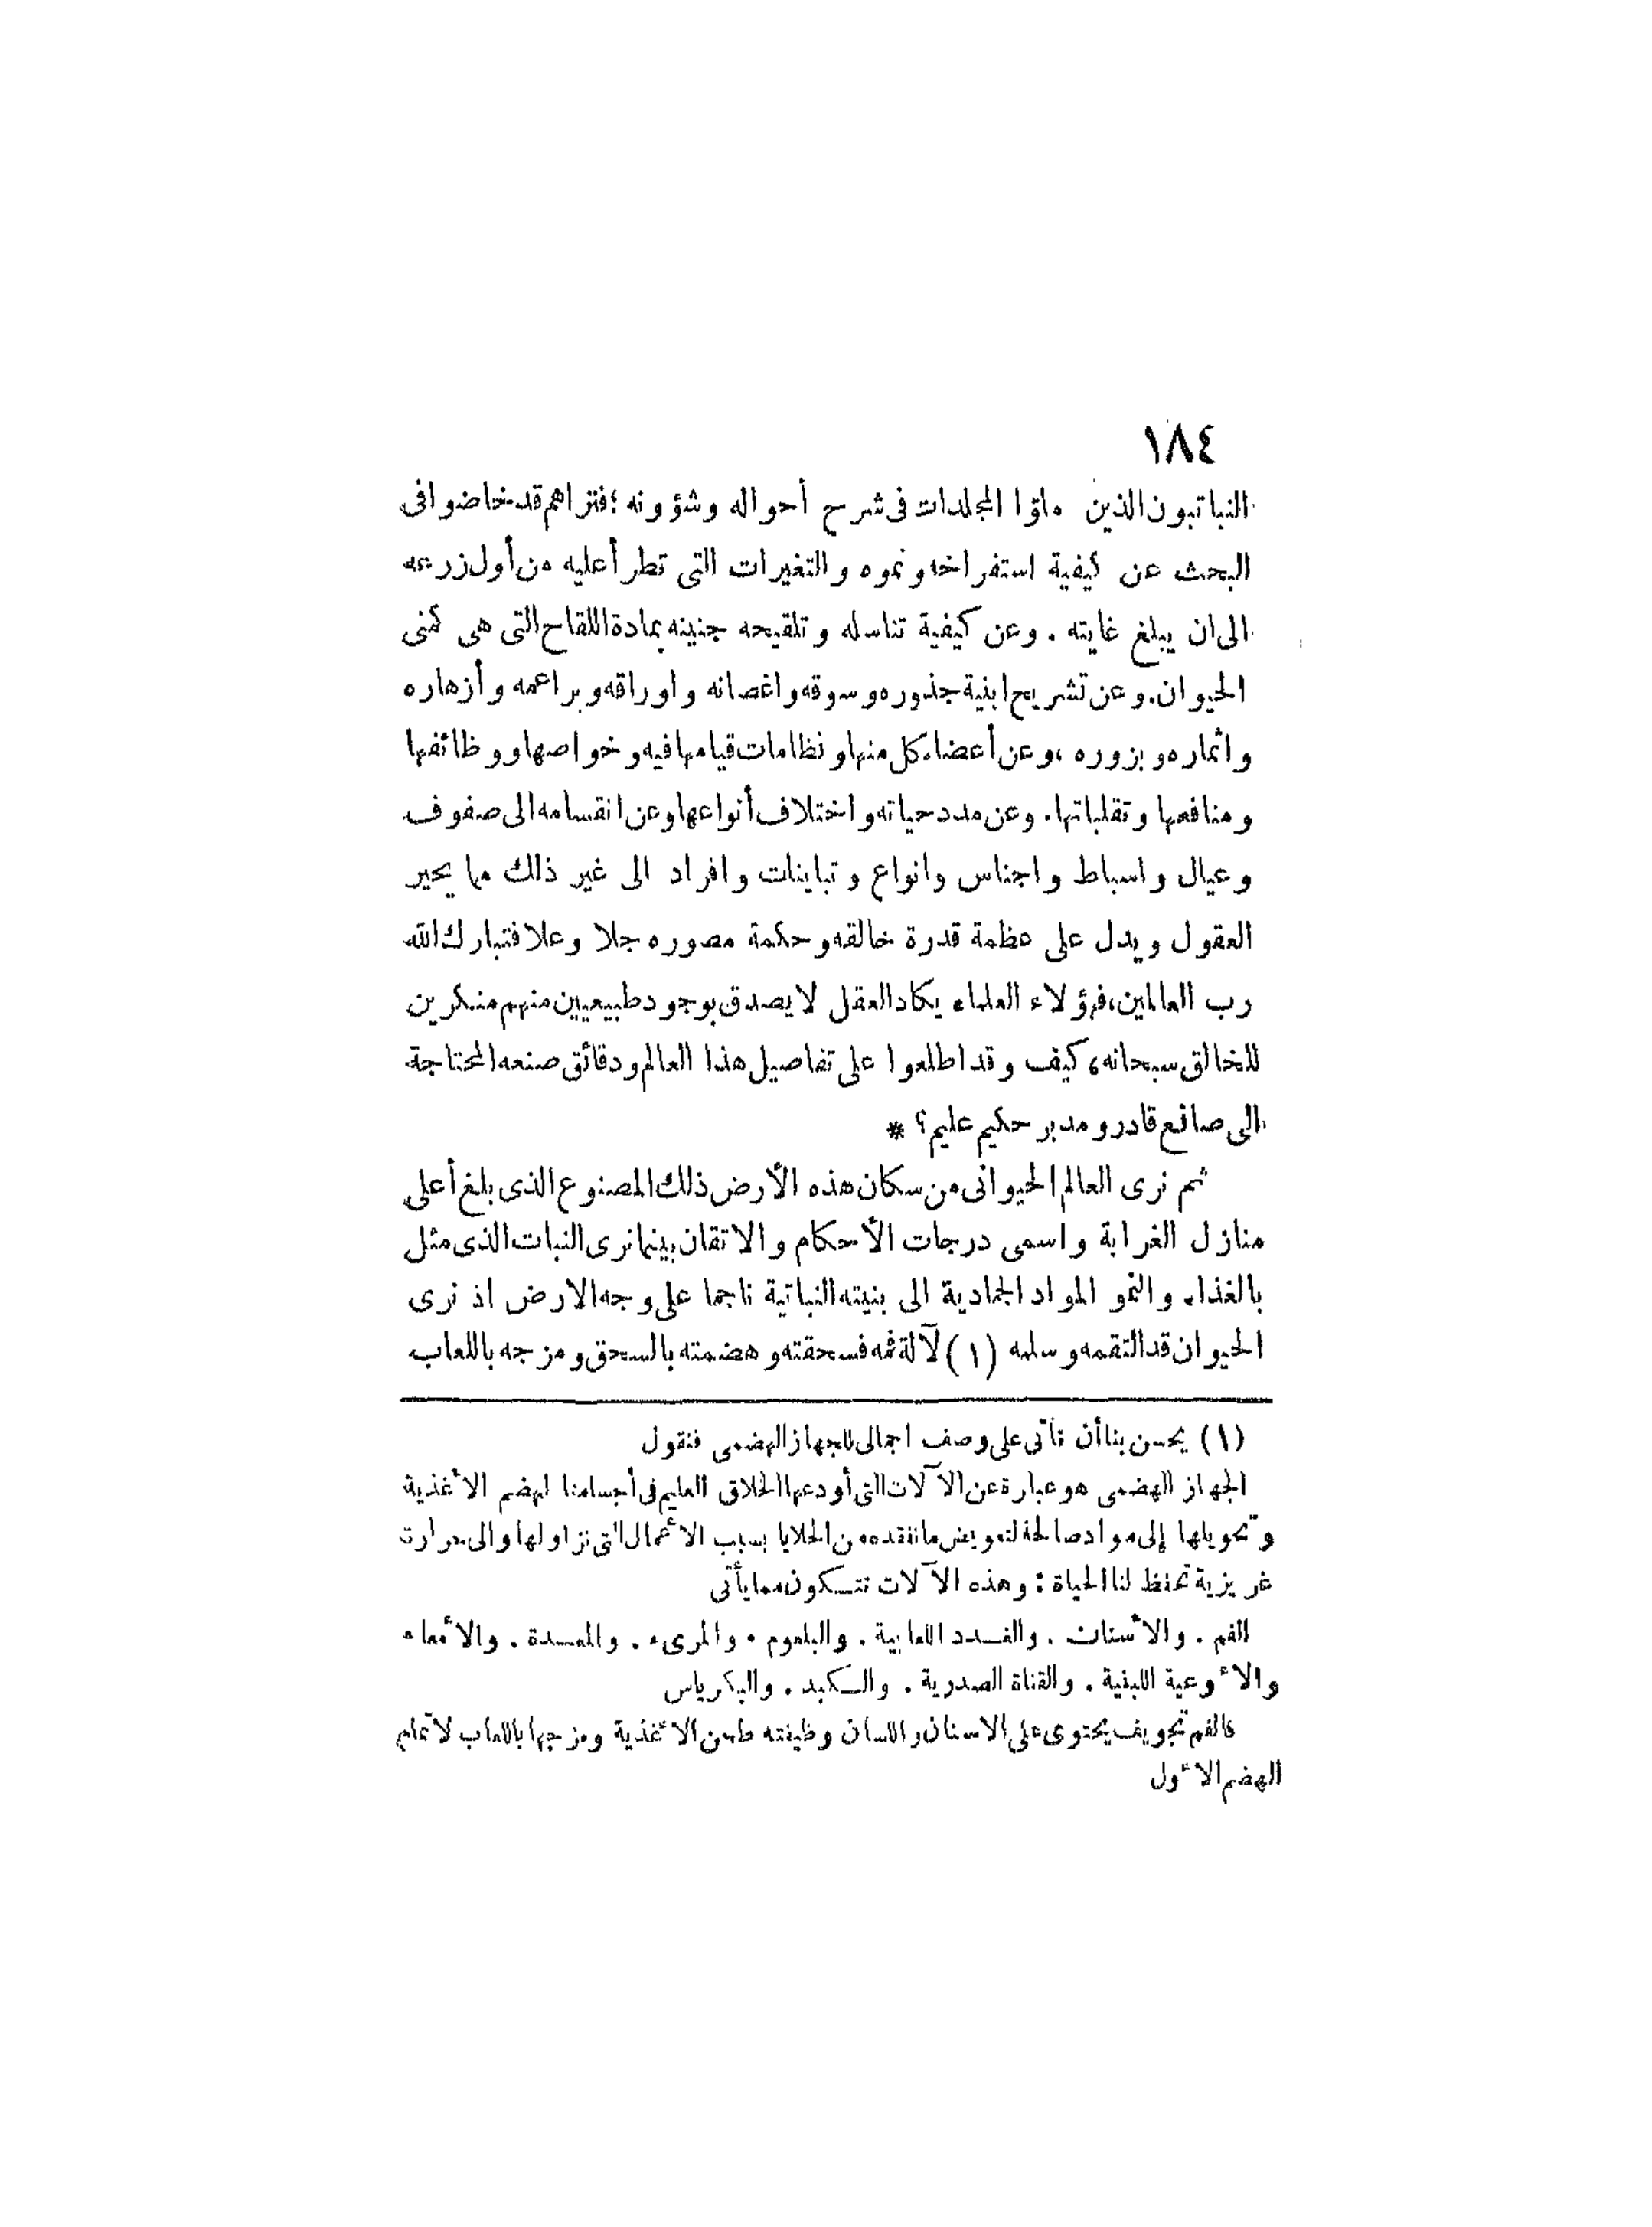 ١٨٤
النباتيون الذين ملؤا المجلدات فى شرح أحواله وشؤونه ؛ فتراهم قد خاضوا فى
البحث عن كيفية استفراخه ونموه والتغيرات التى تطرأ عليه من أول زرعه
الى ان يبلغ غايته . وعن كيفية تناسله وتلقيحه جنينه بمادة اللقاح التى هى كمنى
الحيوان . وعن تشريح ابنية جذوره وسوقه واغصانه واوراقه وبراعمه وأزهاره
واثماره وبزوره ، وعن أعضاء كل منها ونظامات قيامها فيه وخواصها ووظائفها
ومنافعها وتقلباتها . وعن مدد حياته واختلاف أنواعها وعن انقسامه الى صفوف
وعيال واسباط واجناس وانواع وتباينات وافراد الى غير ذلك مما يحير
العقول ويدل على عظمة قدرة خالقه وحكمة مصوره جلا وعلا فتبارك الله
رب العالمين ، فهؤلاء العلماء يكاد العقل لا يصدق بوجود طبيعيين منهم منكرين
للخالق سبحانه ، كيف وقد اطلعوا على تفاصيل هذا العالم ودقائق صنعه المحتاجة
الى صانع قادر ومدبر حكيم عليم ؟ *
ثم نرى العالم الحيوانى من سكان هذه الأرض ذلك المصنوع الذى بلغ أعلى
منازل الغرابة واسمى درجات الأحكام والاتقان بينما نرى النبات الذى مثل
بالغذاء والنمو المواد الجمادية الى بنيته النباتية ناجما على وجه الارض اذ نرى
الحيوان قد التقمه وسلمه (١) لآلة فمه فسحقته وهضمته بالسحق ومزجه باللعاب
(١) يحسن بنا أن نأتى على وصف اجمالى للجهاز الهضمى فنقول
الجهاز الهضمى هو عبارة عن الآلات التى أودعها الخلاق العليم فى أجسامنا لهضم الأغذية
وتحويلها إلى مواد صالحة لتعويض مانفقده من الخلايا بسبب الأعمال التى نزاولها والى حرارة
غريزية تحفظ لنا الحياة : وهذه الآلات تتكون مما يأتى
الفم . والأسنان . والغدد اللعابية . والبلعوم . والمرىء . والمعدة . والأمعاء
والأوعية اللبنية . والقناة الصدرية . والكبد . والبنكرياس
فالفم تجويف يحتوى على الاسنان واللسان وظيفته طحن الأغذية ومزجها باللعاب لاتمام
الهضم الأول